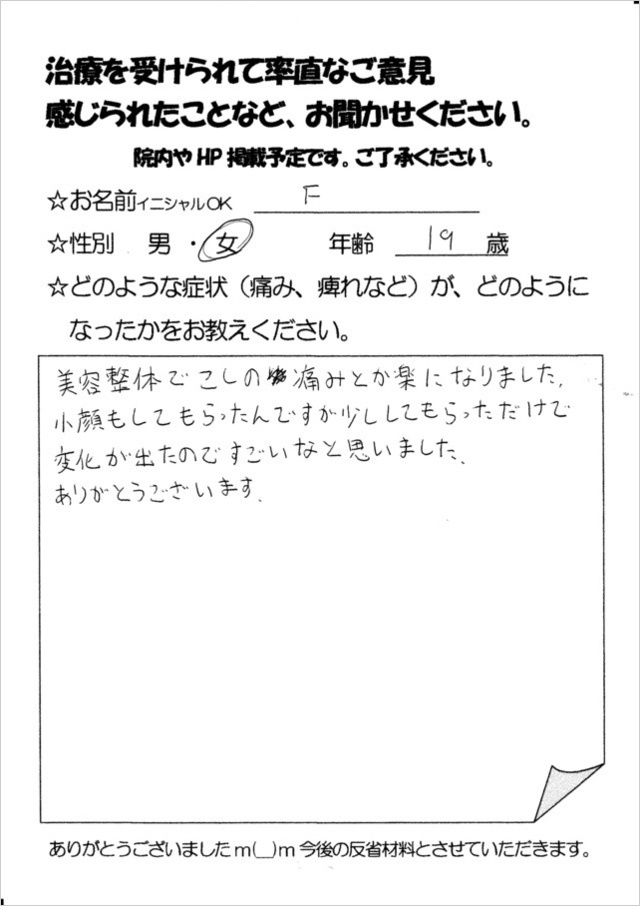 治療を受けられて率直なご意見
感じられたことなど、お聞かせください。
院内やHP掲載予定です。ご了承ください。
☆お名前イニシャルOK F
☆性別 男 ・ 女 年齢 19 歳
☆どのような症状（痛み、痺れなど）が、どのように
なったかをお教えください。
美容整体でこしの痛みとか楽になりました。
小顔もしてもらったんですが少ししてもらっただけで
変化が出たのですごいなと思いました。
ありがとうございます。
ありがとうございましたm(__)m今後の反省材料とさせていただきます。